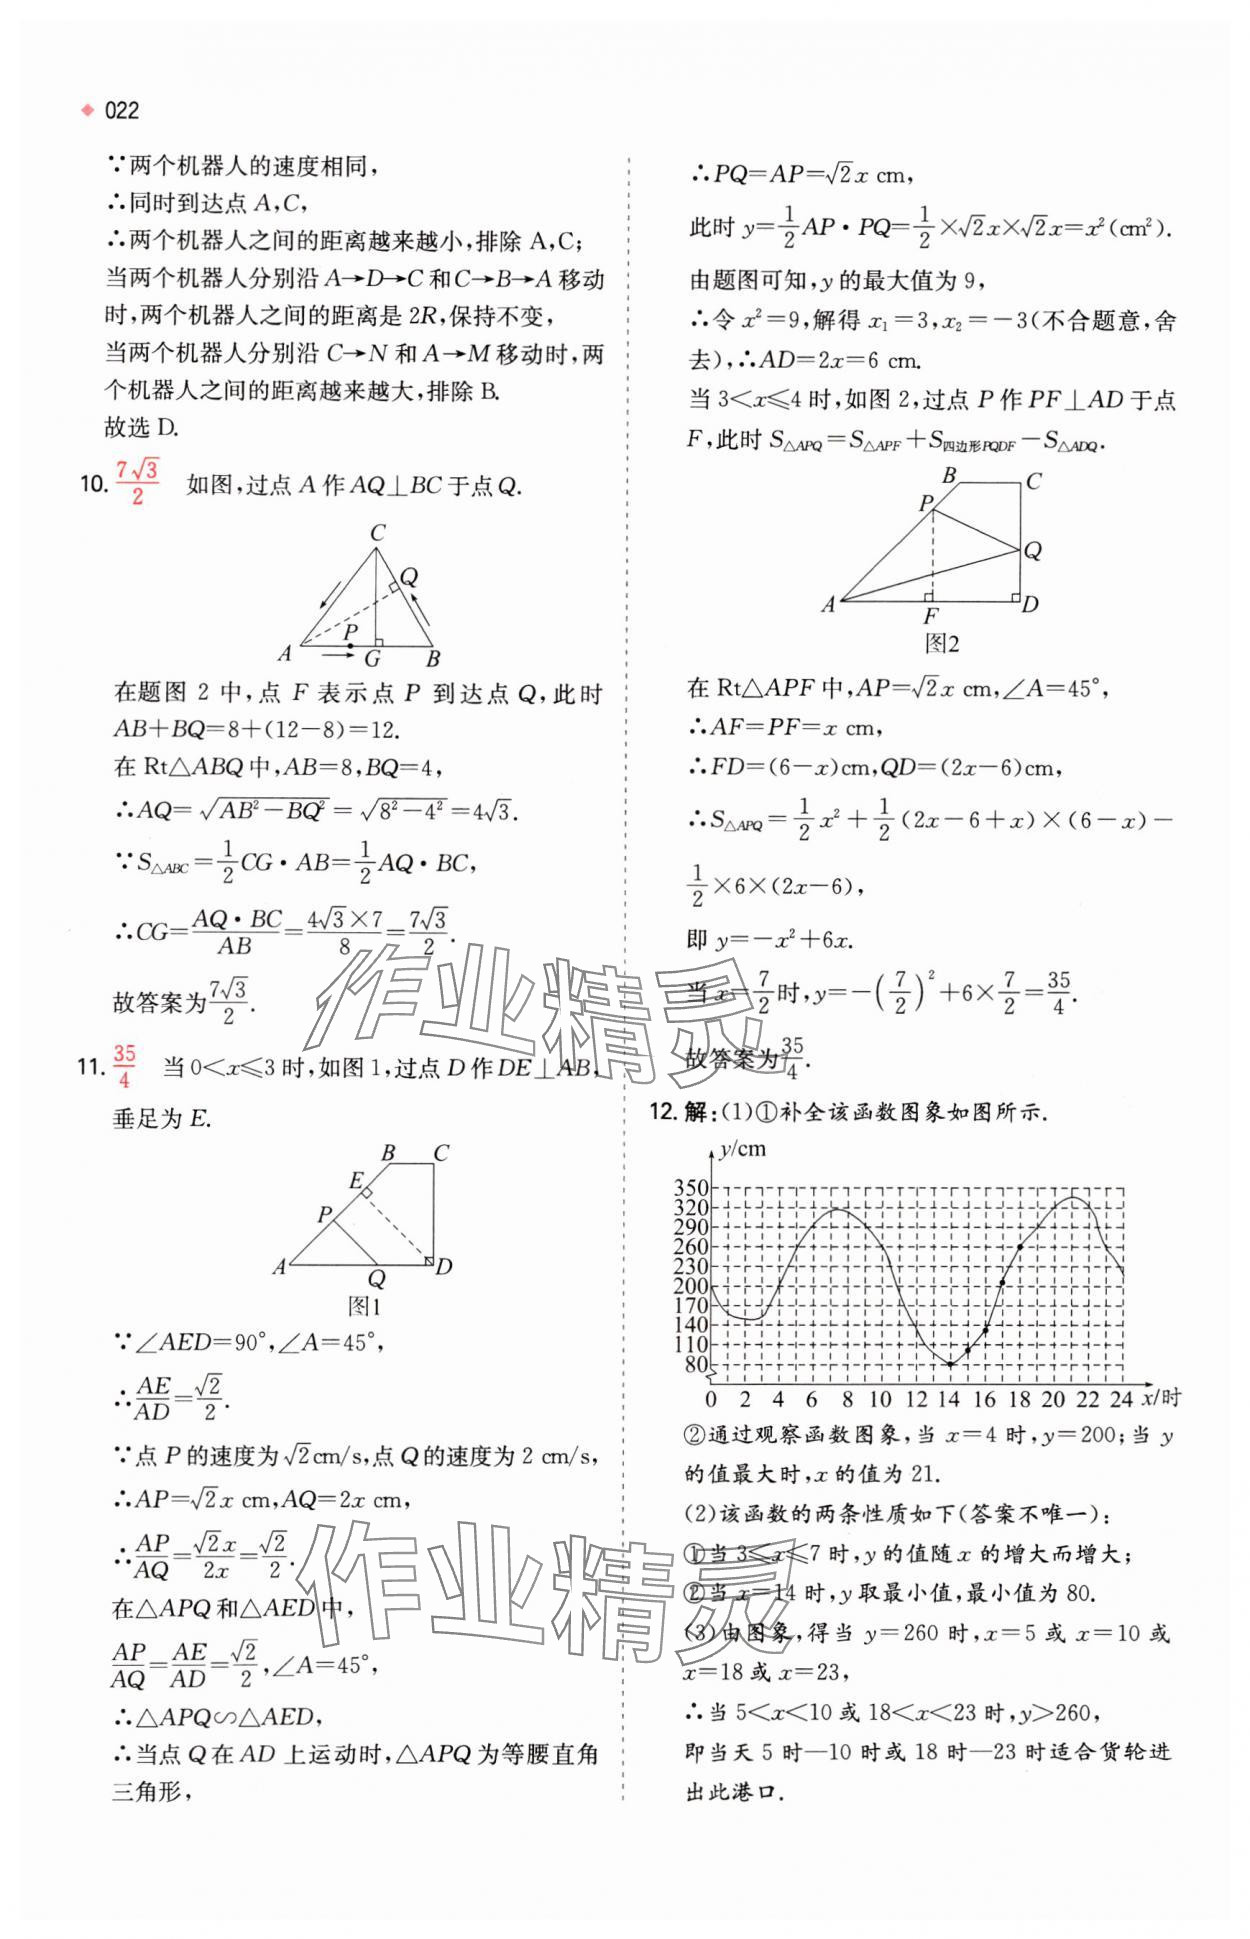 022
∵两个机器人的速度相同,
∴同时到达点 A,C,
∴两个机器人之间的距离越来越小,排除 A,C;
当两个机器人分别沿 A→D→C 和 C→B→A 移动
时,两个机器人之间的距离是 2R,保持不变,
当两个机器人分别沿 C→N 和 A→M 移动时,两
个机器人之间的距离越来越大,排除 B.
故选 D.
10. 7√3/2 如图,过点 A 作 AQ⊥BC 于点 Q.
C
Q
A P G B
在题图 2 中,点 F 表示点 P 到达点 Q,此时
AB+BQ=8+(12-8)=12.
在 Rt△ABQ 中,AB=8,BQ=4,
∴AQ=√(AB²-BQ²)=√(8²-4²)=4√3.
∵S△ABC=1/2 CG·AB=1/2 AQ·BC,
∴CG=AQ·BC/AB=4√3×7/8=7√3/2.
故答案为7√3/2.
11. 35/4 当 0<x≤3 时,如图 1,过点 D 作 DE⊥AB,
垂足为 E.
B C
E
P
A Q D
图1
∵∠AED=90°,∠A=45°,
∴AE/AD=√2/2.
∵点 P 的速度为√2cm/s,点 Q 的速度为 2 cm/s,
∴AP=√2x cm,AQ=2x cm,
∴AP/AQ=√2x/2x=√2/2.
在△APQ 和△AED 中,
AP/AQ=AE/AD=√2/2,∠A=45°,
∴△APQ∽△AED,
∴当点 Q 在 AD 上运动时,△APQ 为等腰直角
三角形,
∴PQ=AP=√2x cm,
此时 y=1/2 AP·PQ=1/2×√2x×√2x=x²(cm²).
由题图可知,y 的最大值为 9,
∴令 x²=9,解得 x₁=3,x₂=-3(不合题意,舍
去),∴AD=2x=6 cm.
当 3<x≤4 时,如图 2,过点 P 作 PF⊥AD 于点
F,此时 S△APQ=S△APF+S四边形PQDF-S△ADQ.
B C
P
Q
A F D
图2
在 Rt△APF 中,AP=√2x cm,∠A=45°,
∴AF=PF=x cm,
∴FD=(6-x)cm,QD=(2x-6)cm,
∴S△APQ=1/2 x²+1/2(2x-6+x)×(6-x)-
1/2×6×(2x-6),
即 y=-x²+6x.
当 x=7/2时,y=-(7/2)²+6×7/2=35/4.
故答案为35/4.
12. 解:(1)①补全该函数图象如图所示.
y/cm
350
320
290
260
230
200
170
140
110
80
0 2 4 6 8 10 12 14 16 18 20 22 24 x/时
②通过观察函数图象,当 x=4 时,y=200;当 y
的值最大时,x 的值为 21.
(2)该函数的两条性质如下(答案不唯一):
①当 3≤x≤7 时,y 的值随 x 的增大而增大;
②当 x=14 时,y 取最小值,最小值为 80.
(3)由图象,得当 y=260 时,x=5 或 x=10 或
x=18 或 x=23,
∴当 5<x<10 或 18<x<23 时,y>260,
即当天 5 时—10 时或 18 时—23 时适合货轮进
出此港口.
作业精灵
作业精灵